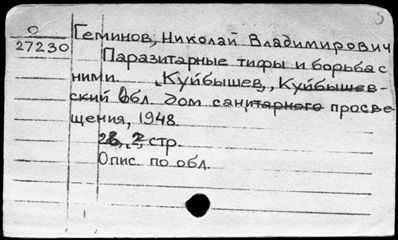 5
О Геминов, Николай Владимирович
27230 Паразитарные тифы и борьба с
ними. Куйбышев, Куйбышев-
ский Обл. дом санитарного просве-
щения, 1948.
28, 2 стр.
Опис. по обл.